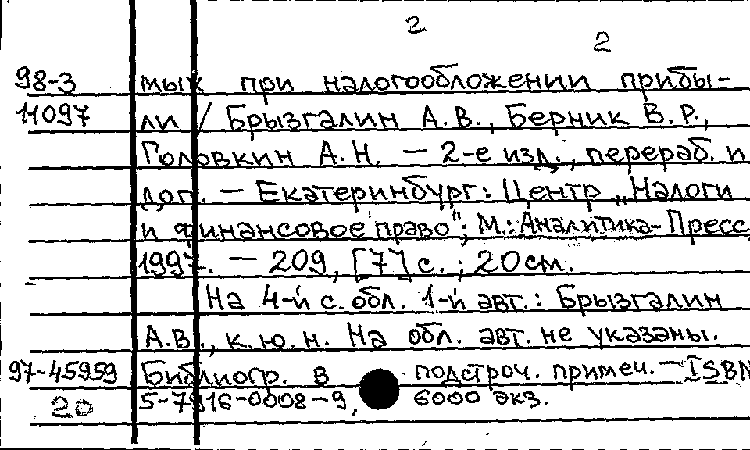 2
2
98-3 мых при налогообложении прибы-
11097 ли / Брызгалин А.В., Берник В.Р.,
Головкин А.Н. — 2-е изд., перераб. и
доп. — Екатеринбург: Центр „Налоги
и финансовое право"; М.: Аналитика-Пресс,
1997. — 209, [7] с.; 20 см.
На 4-й с. обл. 1-й авт.: Брызгалин
А.В., к.ю.н. На обл. авт. не указаны.
97-45959 Библиогр. в подстроч. примеч. — ISBN
20 5-7916-0008-9, 6000 экз.